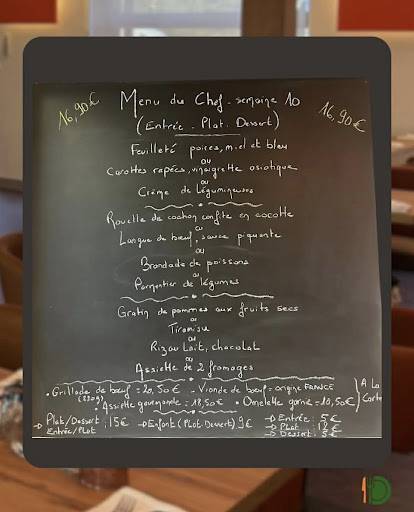 16,90€ Menu du Chef - semaine 10 16,90€
(Entrée - Plat - Dessert)
Feuilleté poires, miel et bleu
ou
Carottes rapées, vinaigrette asiatique
ou
Crème de Légumineuses
Rouelle de cochon confite en cocotte
ou
Langue de bœuf, sauce piquante
ou
Brandade de poissons
ou
Parmentier de légumes
Gratin de pommes aux fruits secs
ou
Tiramisu
ou
Riz au Lait, chocolat
ou
Assiette de 2 fromages
• Grillade de bœuf = 20,50€ - Viande de bœuf = origine FRANCE
• Assiette gourmande = 18,50€ • Omelette garnie = 10,50€ } A La Carte
→ Plat/Dessert : 15€ → Enfant (Plat, Dessert) 9€ → Entrée : 5€
Entrée/Plat → Plat :
→ Dessert : 5€